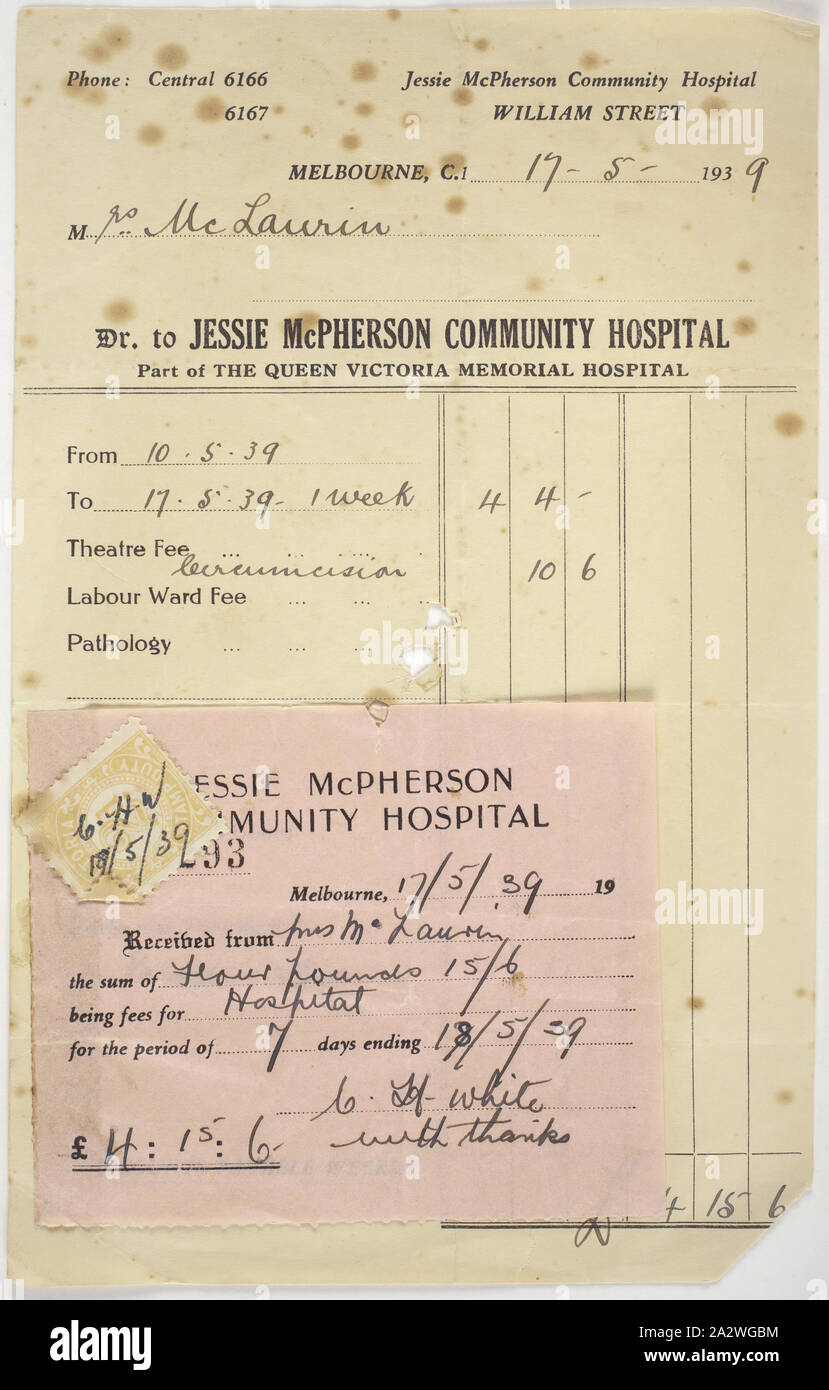 Phone: Central 6166 Jessie McPherson Community Hospital
6167 WILLIAM STREET
MELBOURNE, C.1 17 - 5 - 1939
Mrs. McLaurin
Dr. to JESSIE McPHERSON COMMUNITY HOSPITAL
Part of THE QUEEN VICTORIA MEMORIAL HOSPITAL
From 10 . 5 . 39
To 17 . 5 . 39 - 1 week 4 4 -
Theatre Fee ... ... ...
Circumcision 10 6
Labour Ward Fee ... ... ...
Pathology ... ... ...
ESSIE McPHERSON
MUNITY HOSPITAL
STAMP DUTY
C.H.W
18/5/39
293
Melbourne, 17/5/39 19
Received from Mrs McLaurin
the sum of Four pounds 15/6
being fees for Hospital
for the period of 7 days ending 18/5/39
C. H. White
£ 4 : 15 : 6 - with thanks
4 15 6
alamy
a
alamy
Image ID: 2A2WGBM
www.alamy.com